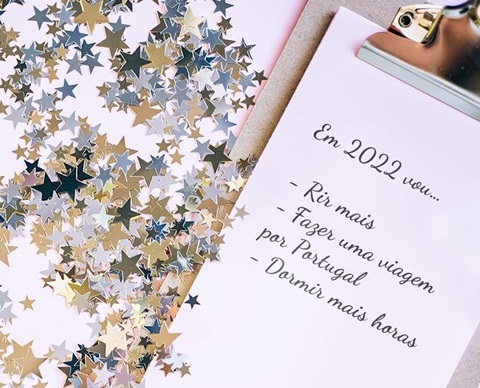 Em 2022 vou...
- Rir mais
- Fazer uma viagem
por Portugal
- Dormir mais horas